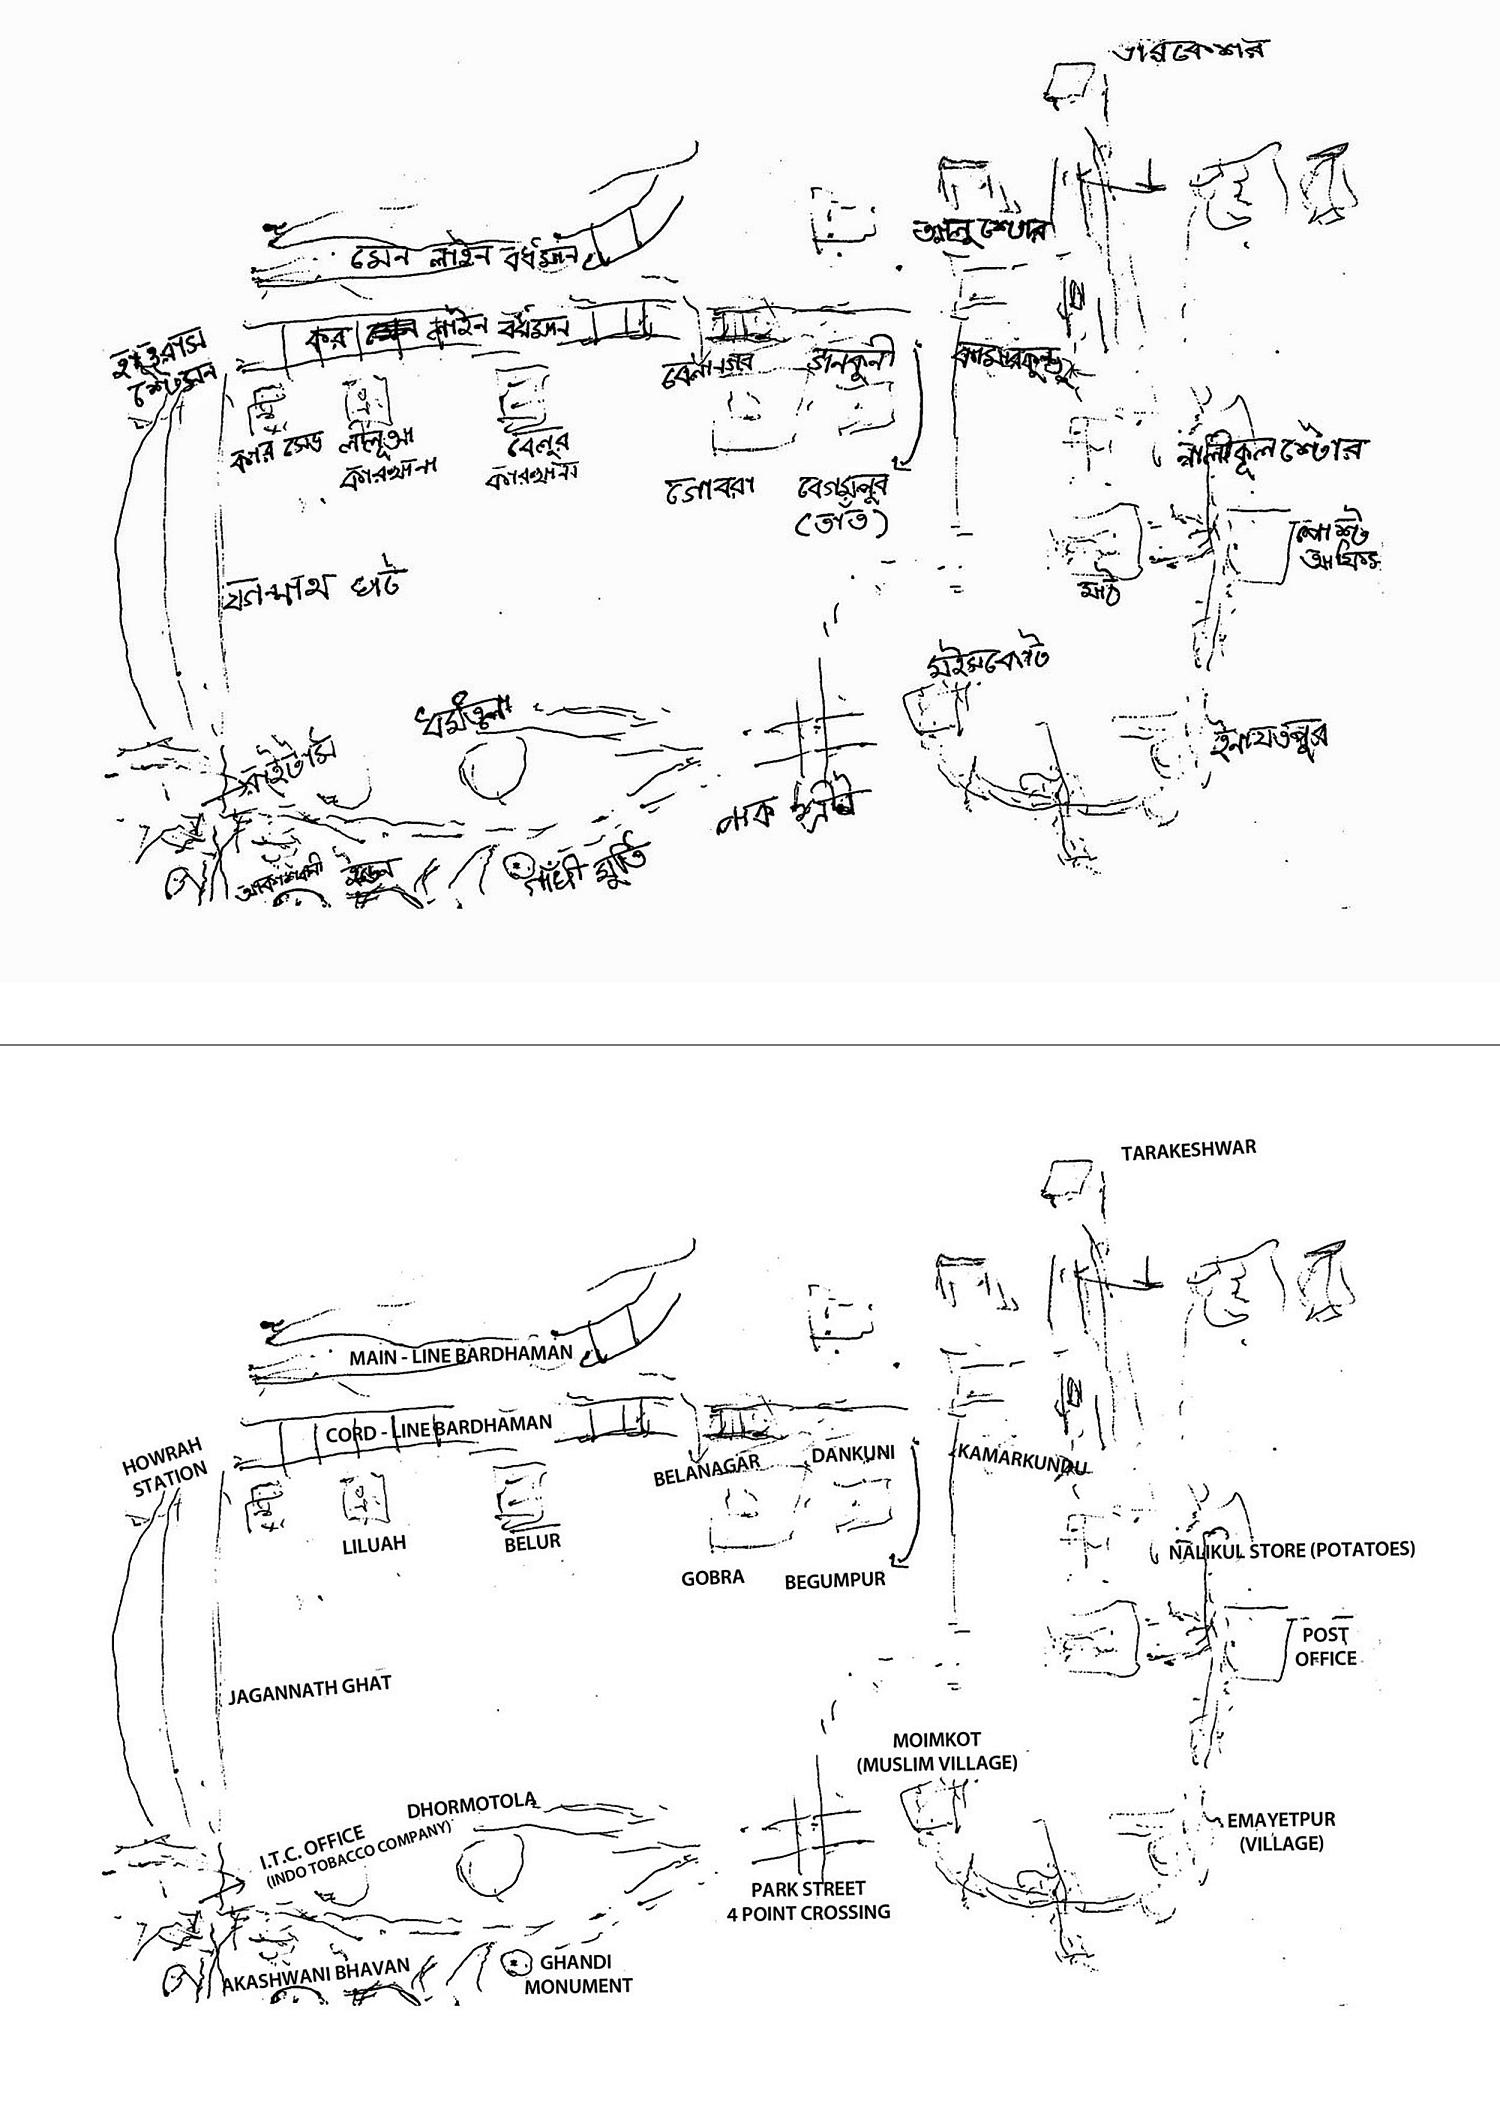 তারকেশর
আলু স্টোর
মেন লাইন বর্ধমান
কর লাইন বর্ধমান
হাওরাস
স্টেসন
বেলানগর
ডানকুনী
কামারকুন্ডু
কার সেড
লীলুআ
কারখানা
বেলুর
কারখানা
গোবরা
বেগমপুর
(তাঁত)
নালীকূল স্টোর
পোস্ট
আফিস
মাঠ
যগন্নাথ ঘাট
মইমকোট
ধর্মতলা
ইনায়েতপুর
রাইটার্স
পাক স্ট্রীট
আকাশবানী
ইডেন
গাঁধী মুর্তি
TARAKESHWAR
MAIN - LINE BARDHAMAN
CORD - LINE BARDHAMAN
HOWRAH
STATION
BELANAGAR
DANKUNI
KAMARKUNDU
LILUAH
BELUR
GOBRA
BEGUMPUR
NALIKUL STORE (POTATOES)
POST
OFFICE
JAGANNATH GHAT
MOIMKOT
(MUSLIM VILLAGE)
DHORMOTOLA
I.T.C. OFFICE
(INDO TOBACCO COMPANY)
EMAYETPUR
(VILLAGE)
PARK STREET
4 POINT CROSSING
AKASHWANI BHAVAN
GHANDI
MONUMENT